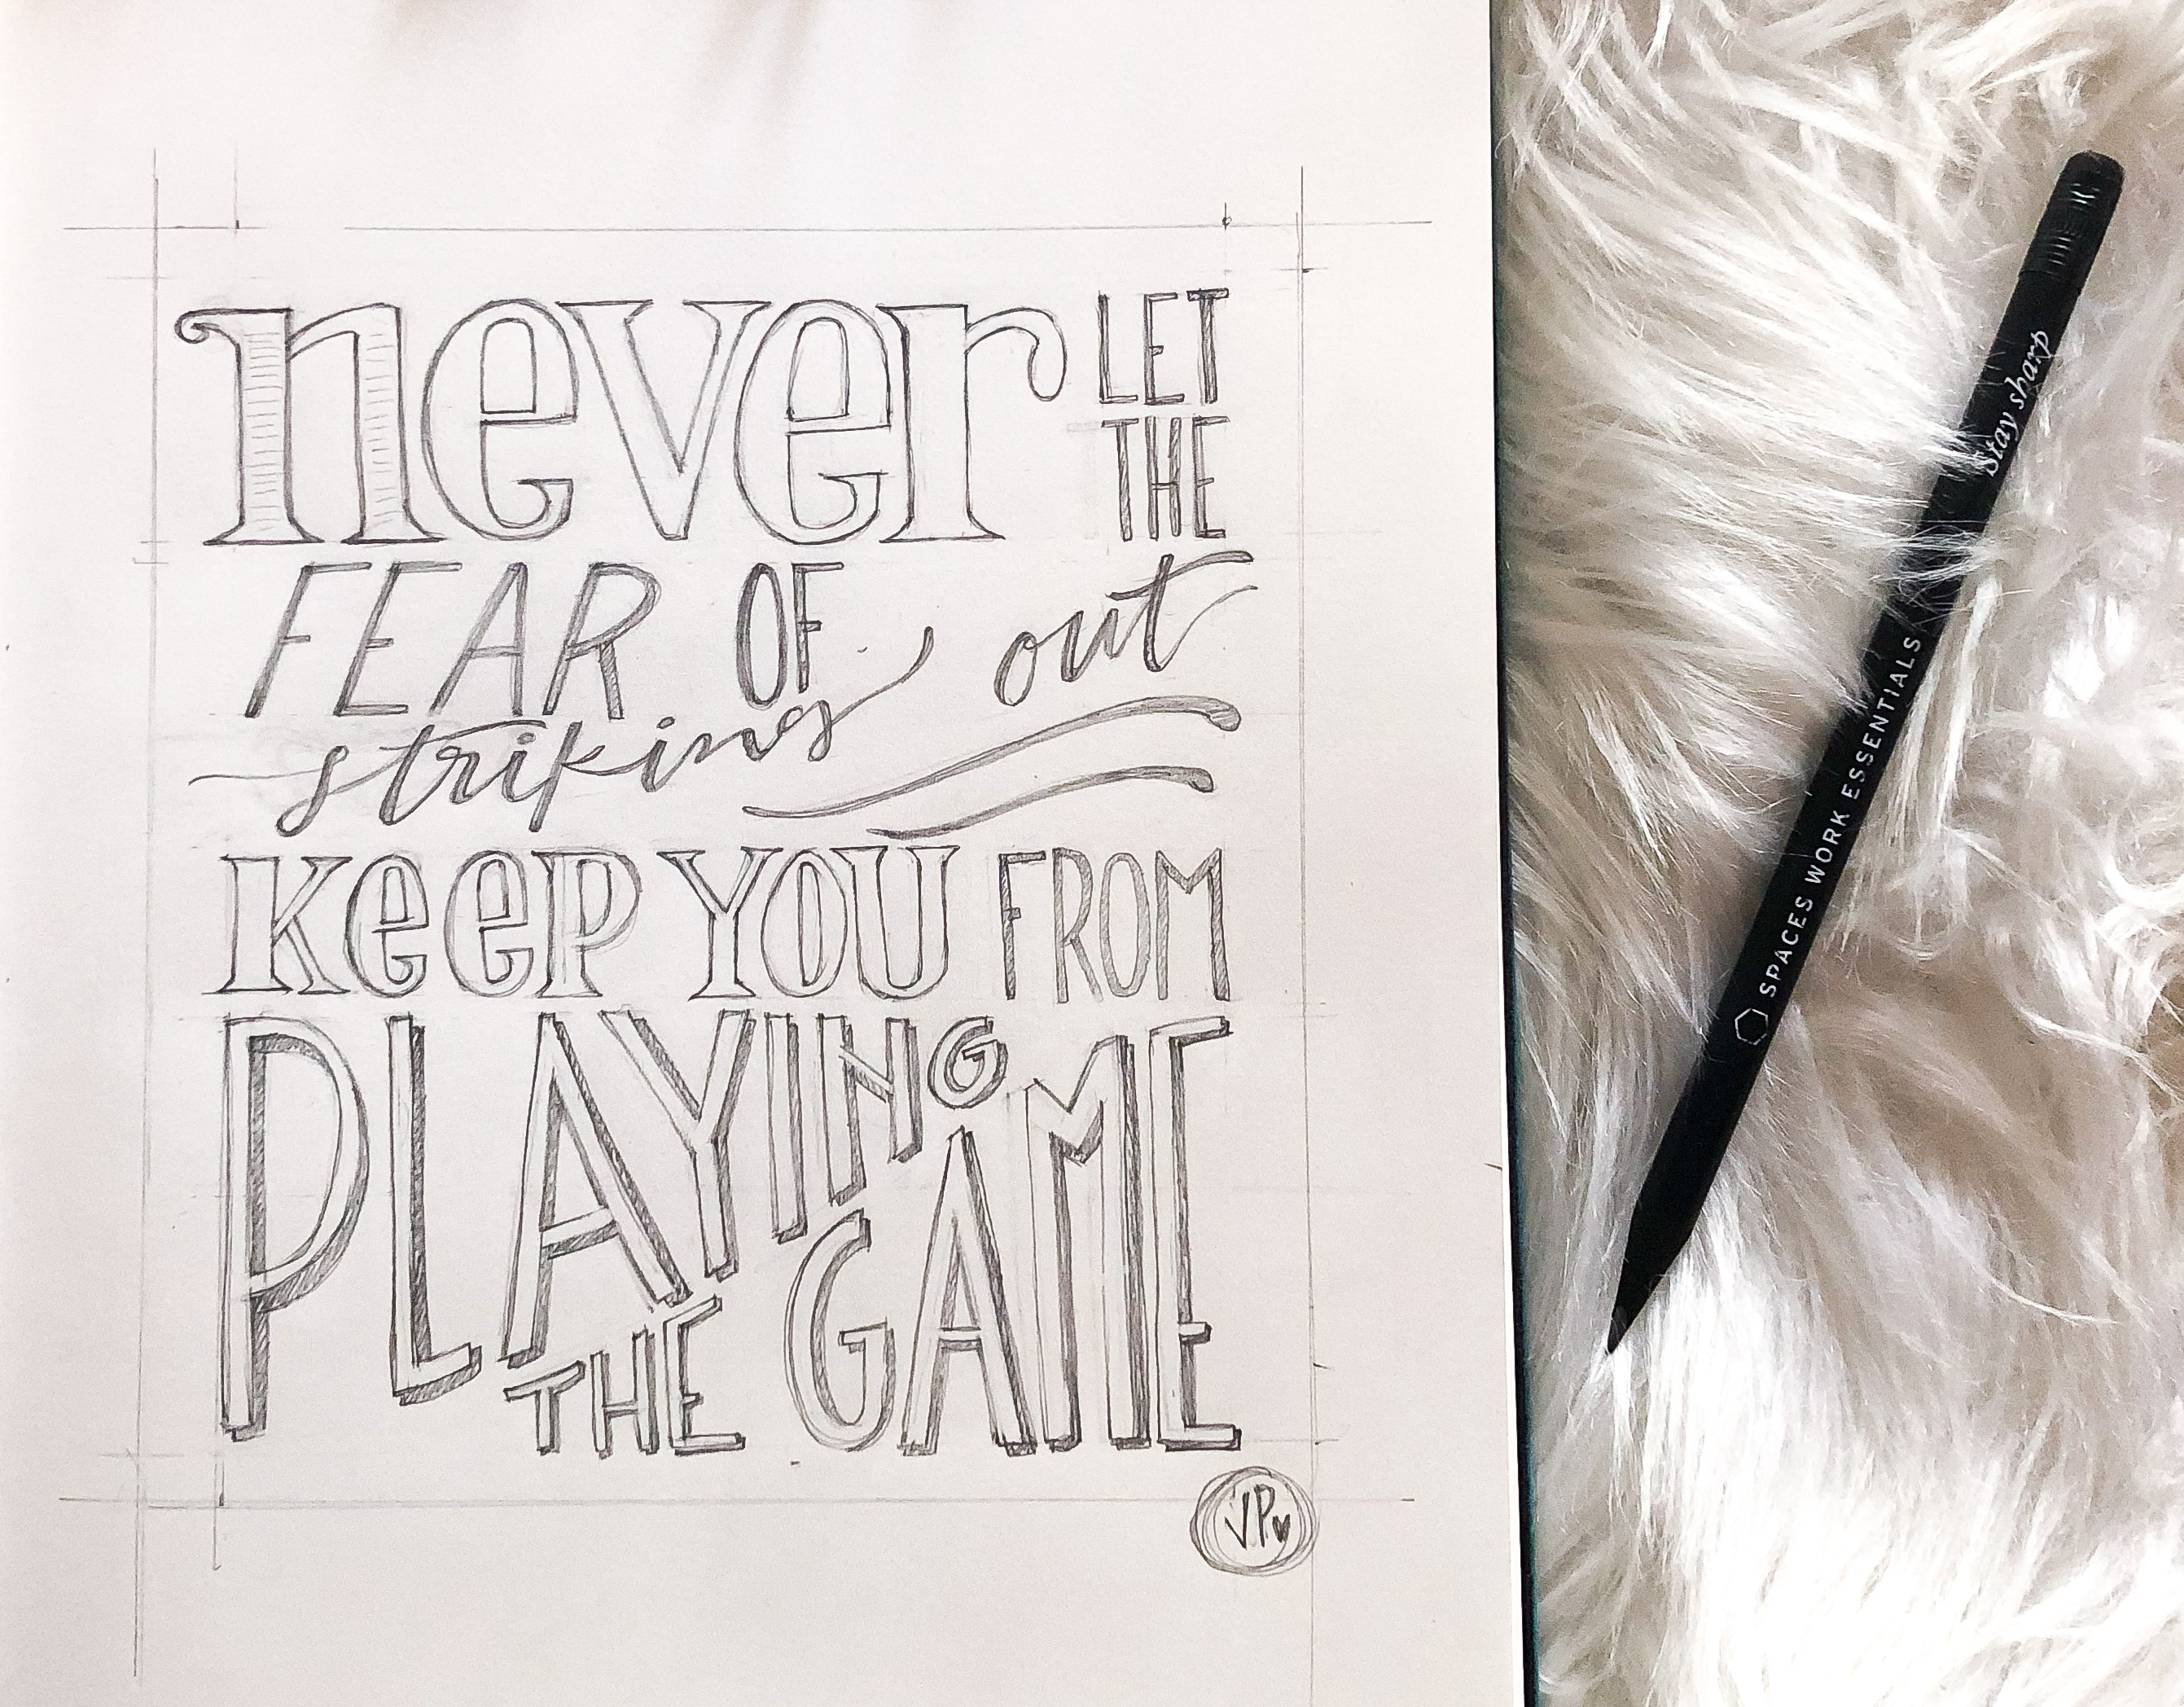 never LET
THE
FEAR OF
striking out
KeeP YOU FROM
PLAYING
THE GAME
VP
Stay sharp
SPACES WORK ESSENTIALS